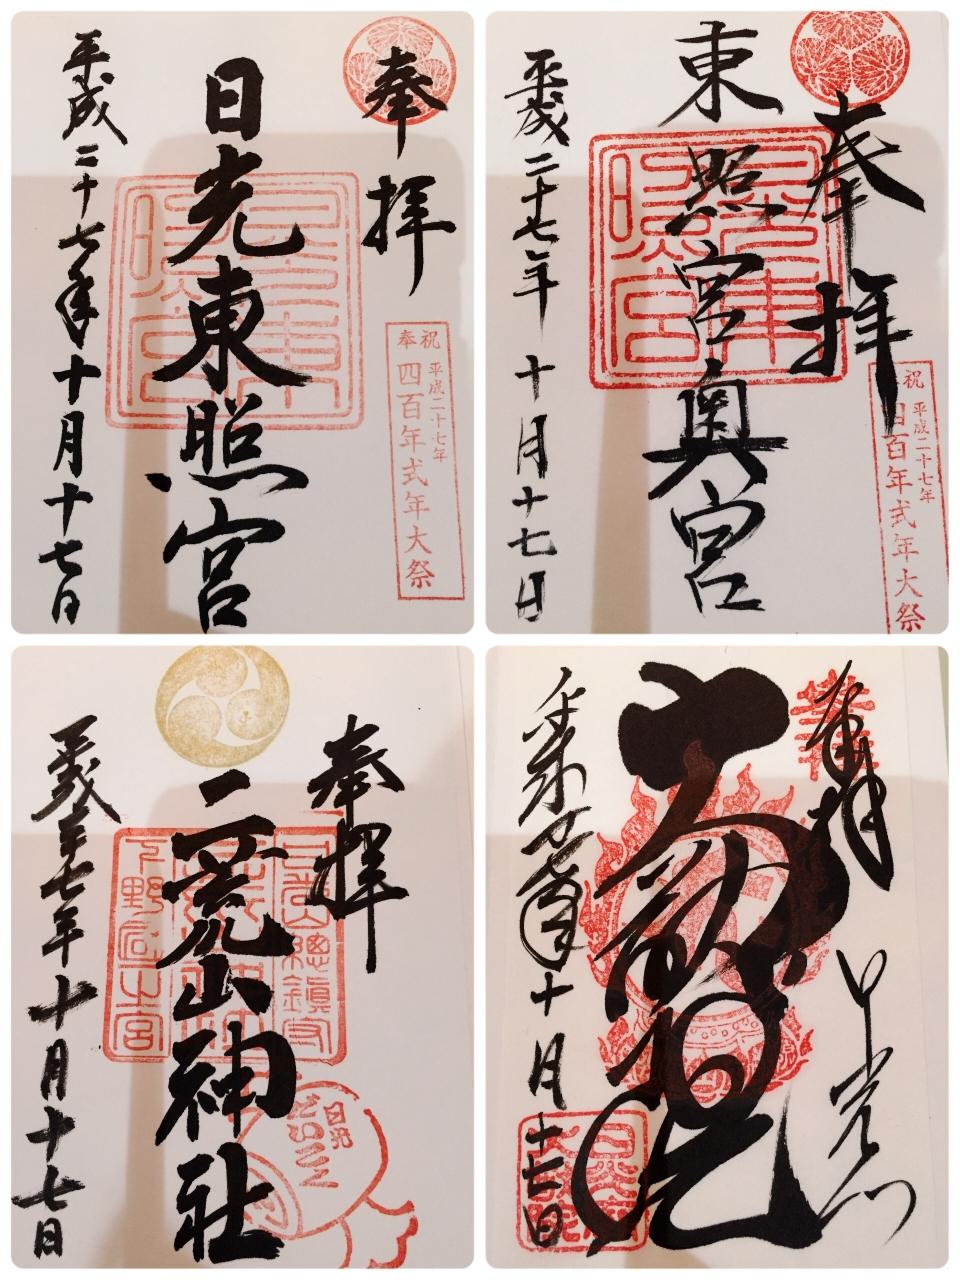 奉拝
日光東照宮
平成二十七年十月十七日
奉祝
平成二十七年
四百年式年大祭
奉拝
東照宮奥宮
平成二十七年十月十七日
祝
平成二十七年
四百年式年大祭
奉拝
二荒山神社
平成二十七年十月十七日
日光
だいこく
奉拝
日光山
平成廿七年十月十七日